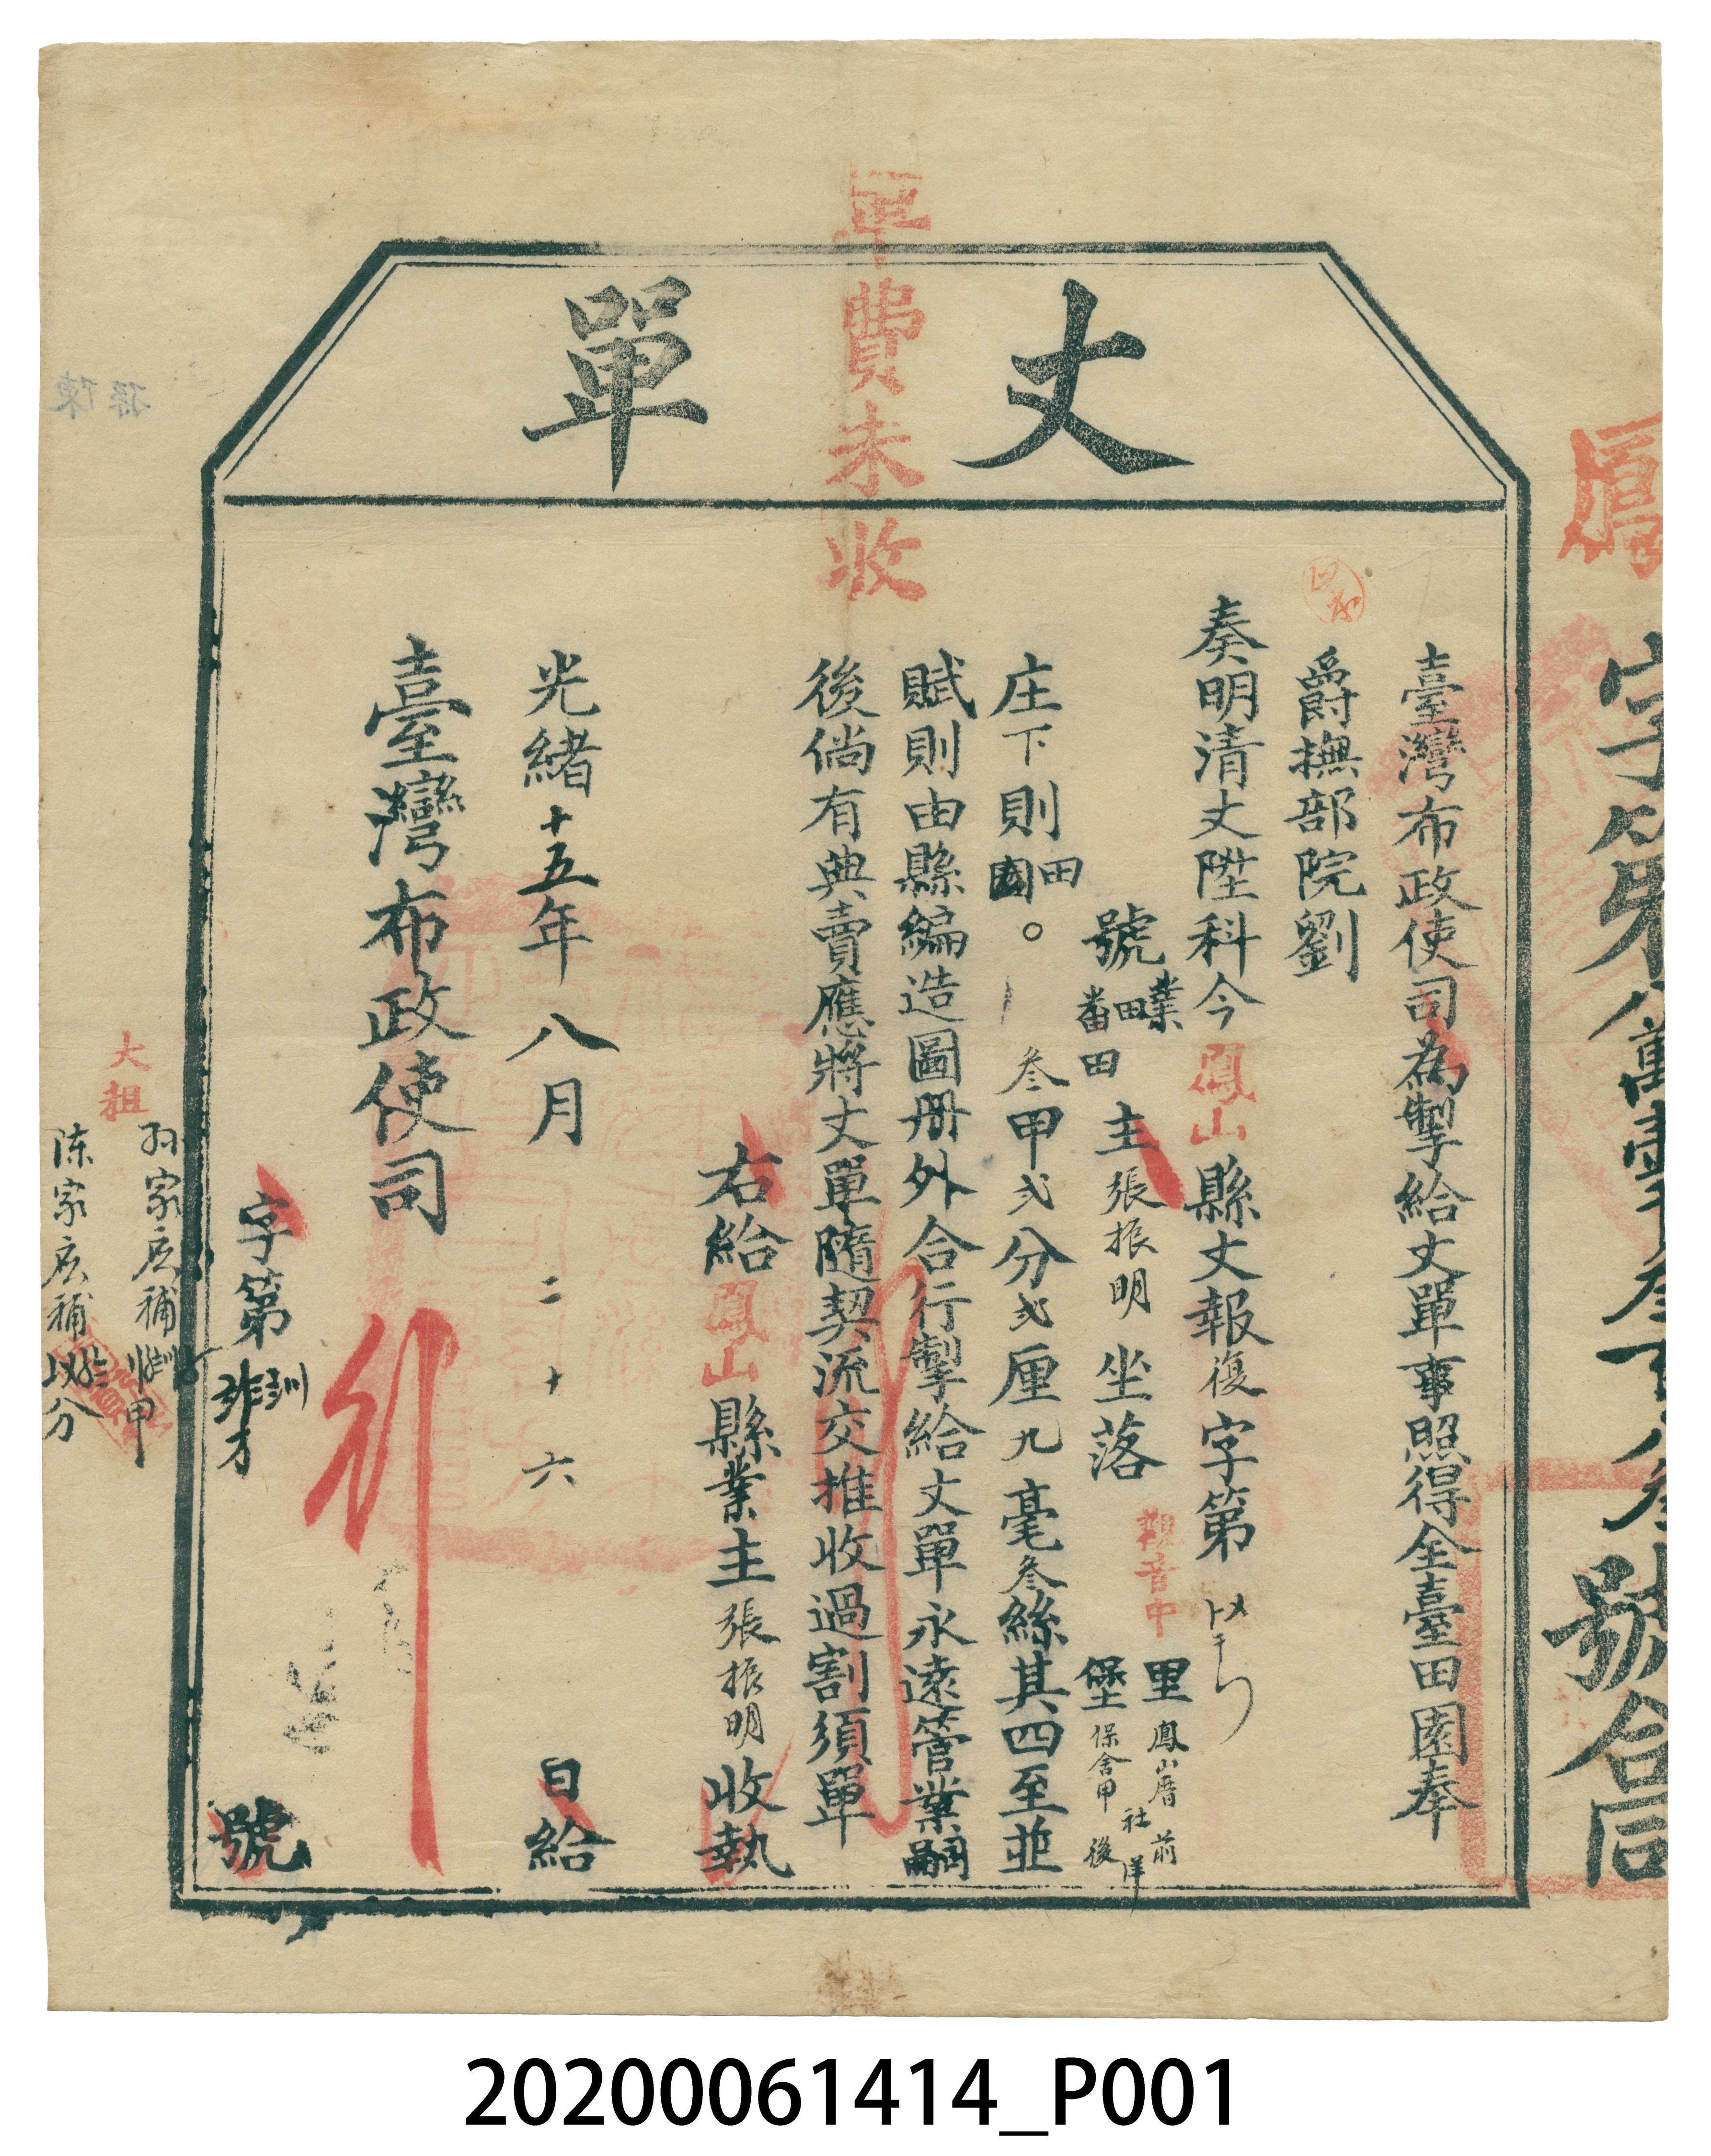 丈單
單費未收
鳳
字第八萬壹千叁百八叁號合同
臺灣布政使司為掣給丈單事照得全臺田園奉
爵撫部院劉
奏明清丈陞科今鳳山縣丈報復字第
號業田番田主張振明坐落觀音中里堡鳳山厝前保舍甲後社洋
庄下則田園。叁甲弍分弍厘九毫叁絲其四至並
賦則由縣編造圖冊外合行掣給丈單永遠管業嗣
後倘有典賣應將丈單隨契流交推收過割須單
右給鳳山縣業主張振明收執
光緒十五年八月二十六日給
臺灣布政使司
字第
號
大租
孫家應補甲
陳家應補分
孫陳
20200061414_P001